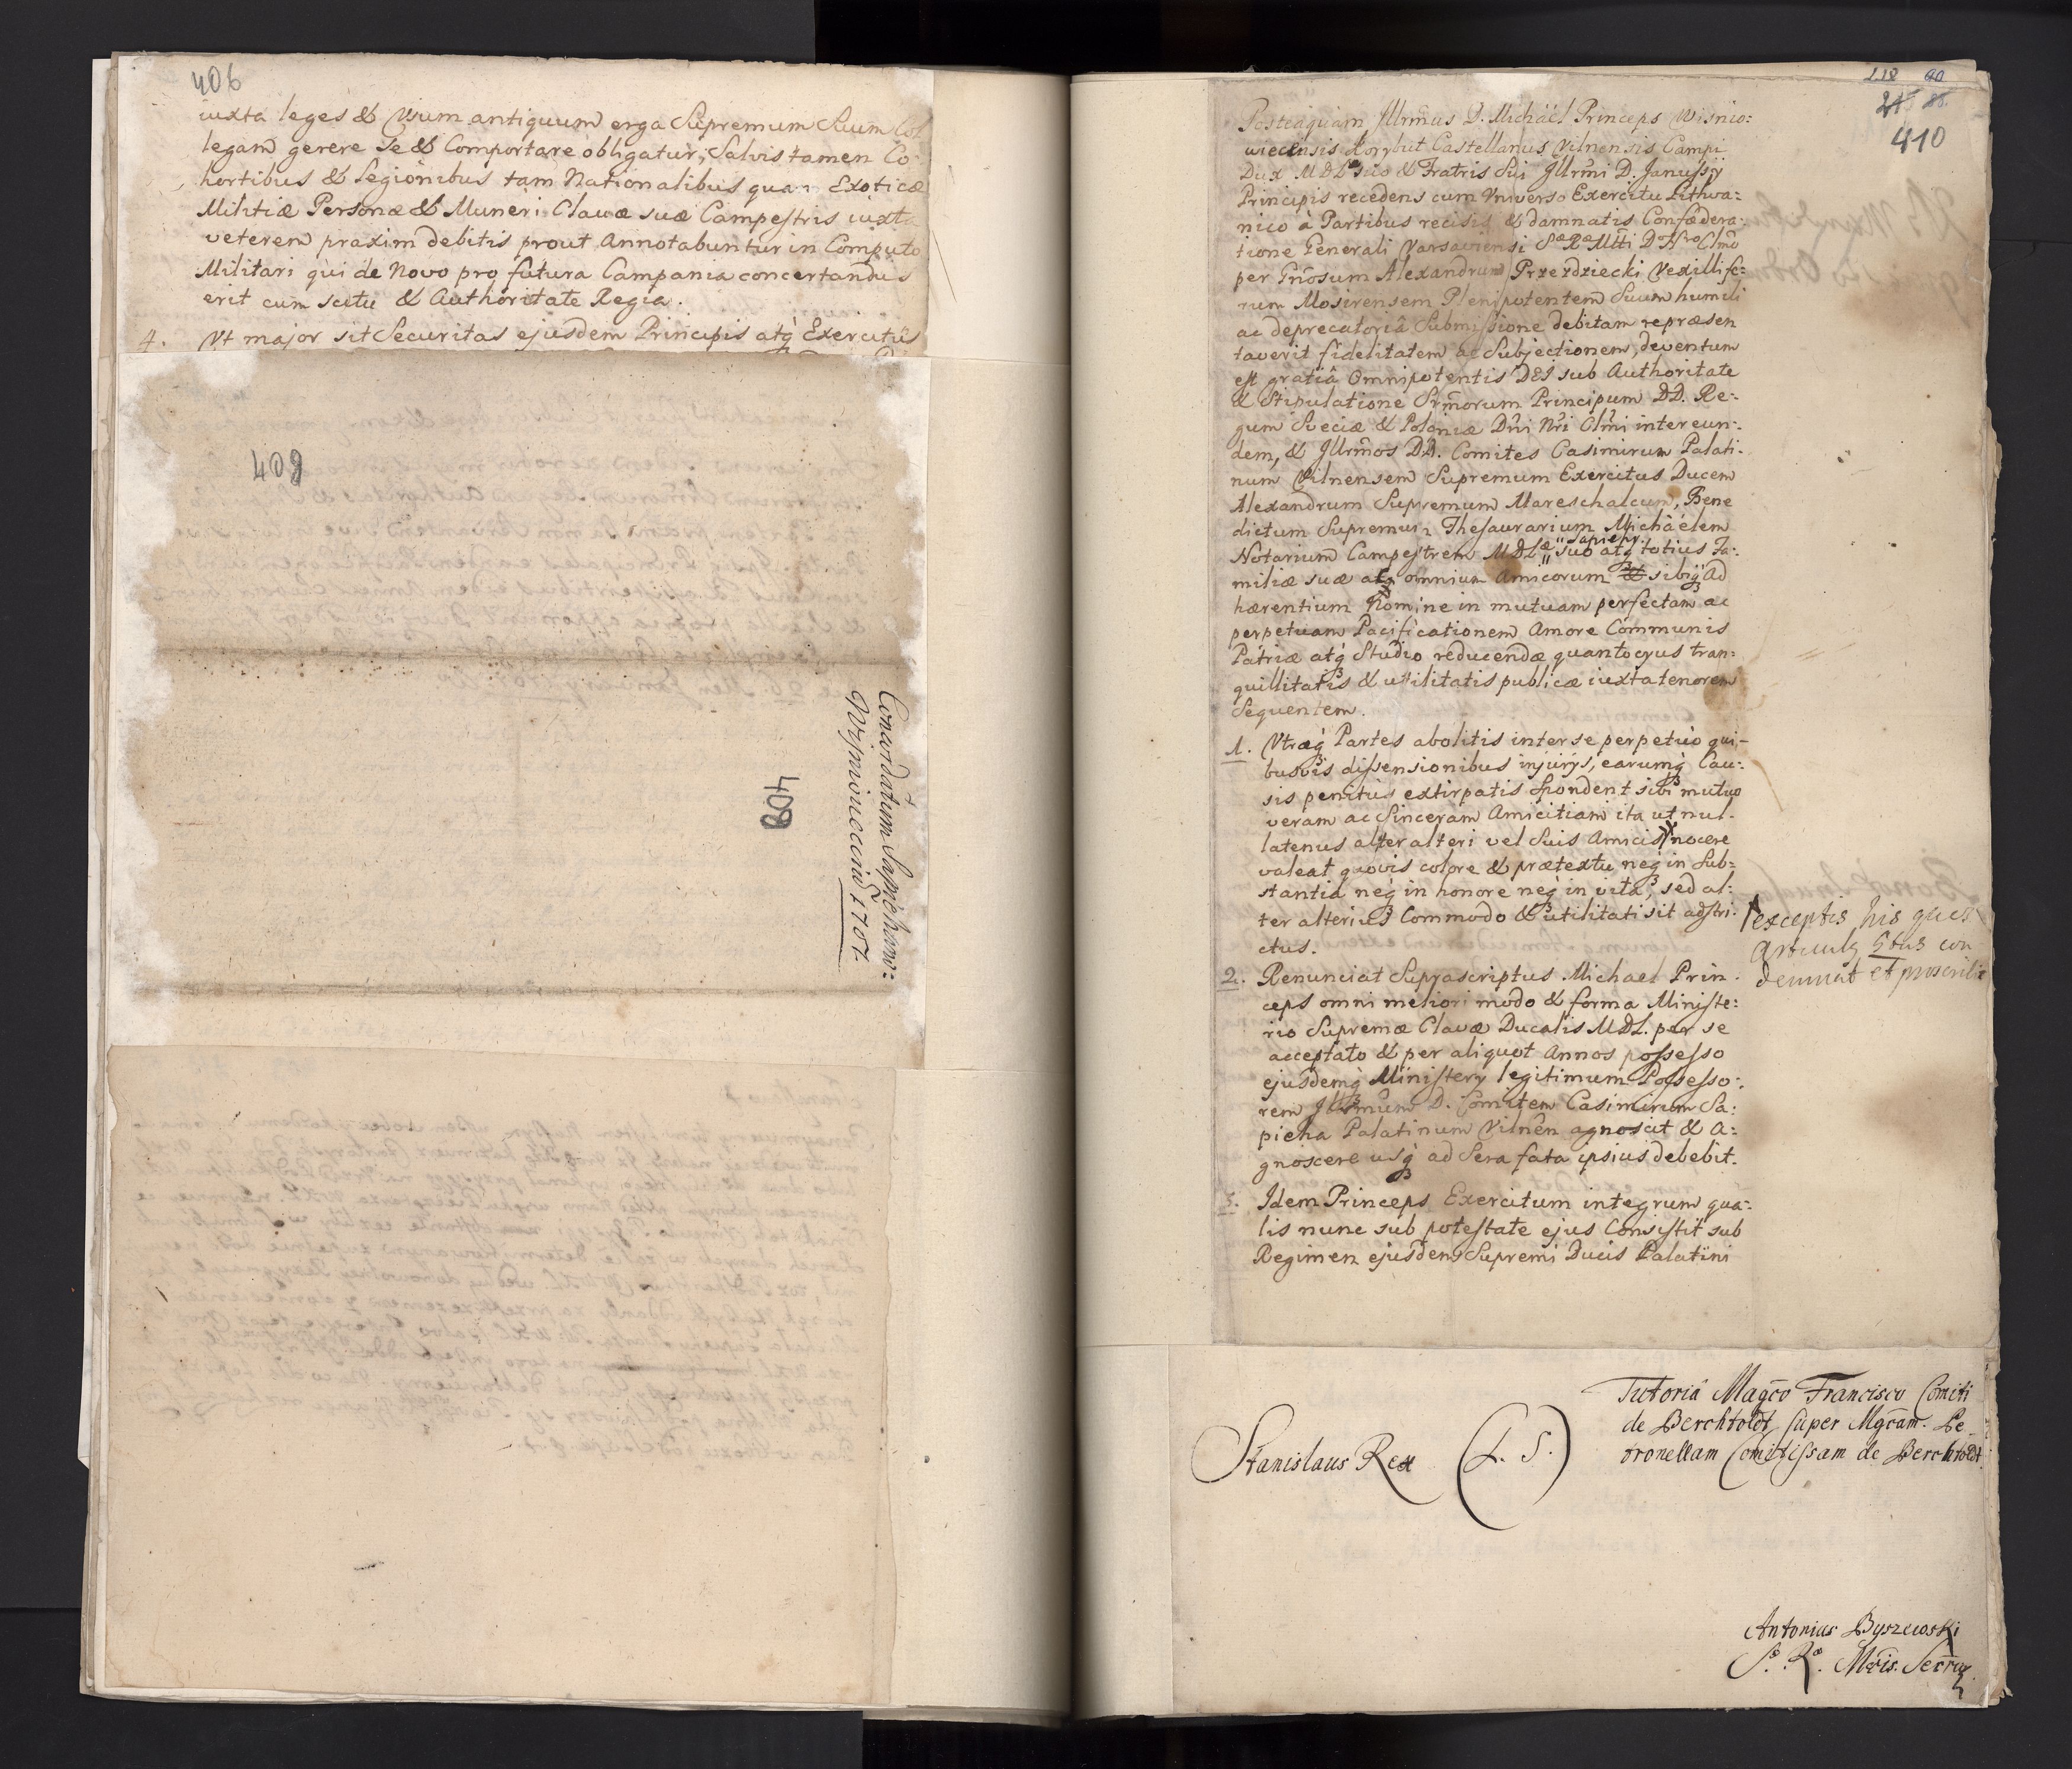 406
iuxta leges & Usum antiquum erga Supremum Suum Col
legam gerere se & Comportare obligatur, Salvis tamen Co
hortibus & Legionibus tam Nationalibus quam Exoticæ
Militiæ Personæ & Muneri Clavæ suæ Campestris iuxta
veterem praxim debitis prout Annotabuntur in Computo
Militari qui de Novo pro futura Campania concertandus
erit cum scitu & Authoritate Regia.
4. Vt major sit Securitas ejusdem Principis atq Exercitûs
409
Concordatum Sapiehani:
Wisniovieciani 1707
409
118 90
21 88
410
Posteaquam Jllrmus D. Michaël Princeps Wisnio:
wiecensis Korybut Castellanus Vilnensis Campi
Dux MDLæ suo & Fratris Sui Jllrmi D. Janussÿ
Principis recedens cum Vniverso Exercitu Lithva:
nico à Partibus recisis & damnatis Confædera:
tione Generali Varsaviensi Sæ Ræ Mtti D Nro Clmo
per Gnosum Alexandrum Przezdziecki Vexillife:
rum Mosirensem Plenipotentem Suum humili
ac deprecatoriâ Submissione debitam repræsen
taverit fidelitatem ac Subjectionem, deventum
est gratiâ Omnipotentis DEI sub Authoritate
& Stipulatione Srmorum Principum DD. Re:
gum Sveciæ & Poloniæ Dni Nri Clmi inter eun:
dem, & Jllrmos DD. Comites Casimirum Palati:
num Vilnensem Supremum Exercitus Ducem
Alexandrum Supremum Mareschalcum, Bene
dictum Supremum Thesaurarium Michäélem
Notarium Campestrem MDLæ suo atq totius Fa:
miliæ suæ atq omnium Amicorum & sibiq Ad
hærentium Nomine in mutuam perfectam ac
perpetuam Pacificationem Amore Communis
Patriæ atq Studio reducendæ quantocyus tran:
quillitatis & utilitatis publicæ iuxta tenorem
Sequentem.
1. Vtræq Partes abolitis inter se perpetuò qui-
busvis dissensionibus injurys, earumq Cau:
sis penitus extirpatis Spondent sibi mutuo
veram ac Sinceram Amicitiam ita ut nul-
latenus alter alteri vel Suis Amicis nocere
valeat quovis colore & prætextu neq in Sub:
stantia neq in honore neq in vita, sed al:
ter alterius Commodo & utilitati sit adstri:
ctus.
exceptis his quos
Articulq 5tus con
demnat et proscribit
2. Renunciat Suprascriptus Michael Prin:
ceps omni meliori modo & forma Ministe:
rio Supremæ Clavæ Ducalis MDL. per se
acceptato & per aliquot Annos possesso
ejusdemq Ministerÿ legitimum Possesso:
rem Jllrmum D. Comitem Casimirum Sa:
pieha Palatinum Vilnen agnoscit & A:
gnoscere usq ad Sera fata ipsius debebit.
3. Idem Princeps Exercitum integrum qua:
lis nunc sub potestate ejus Consistit sub
Regimen ejusdem Supremi Ducis Palatini
Tutoria Magco Francisco Comiti
de Berchtoldt super Mgcam. Pe-
tronellam Comitissam de Berchtoldt.
Stanislaus Rex (L. S.)
Antonius Byszewski
Sæ. Ræ. Mtis. Secrius